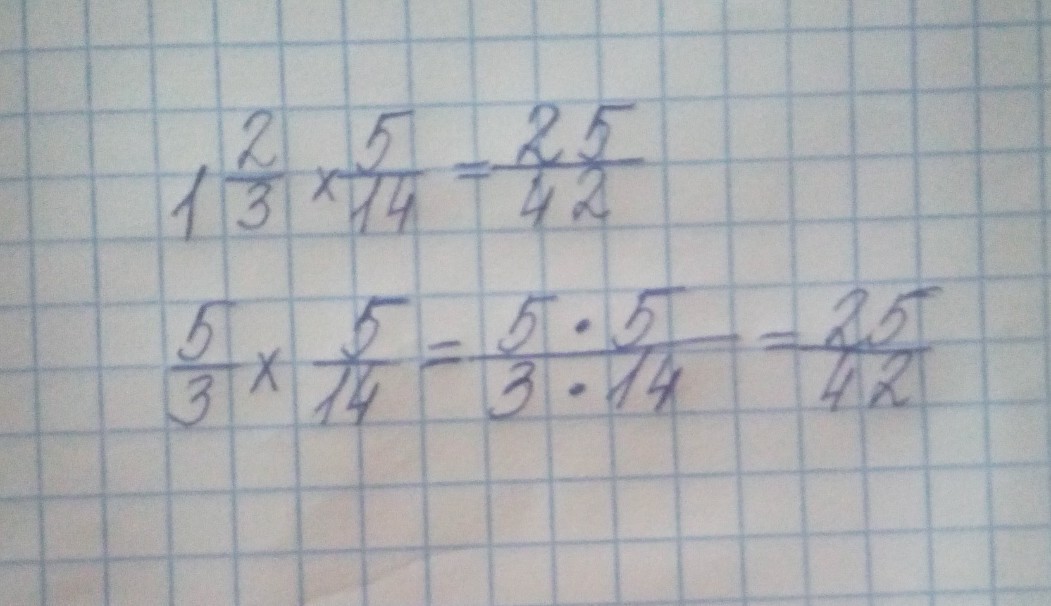 1 2/3 × 5/14 = 25/42
5/3 × 5/14 = 5·5/3·14 = 25/42